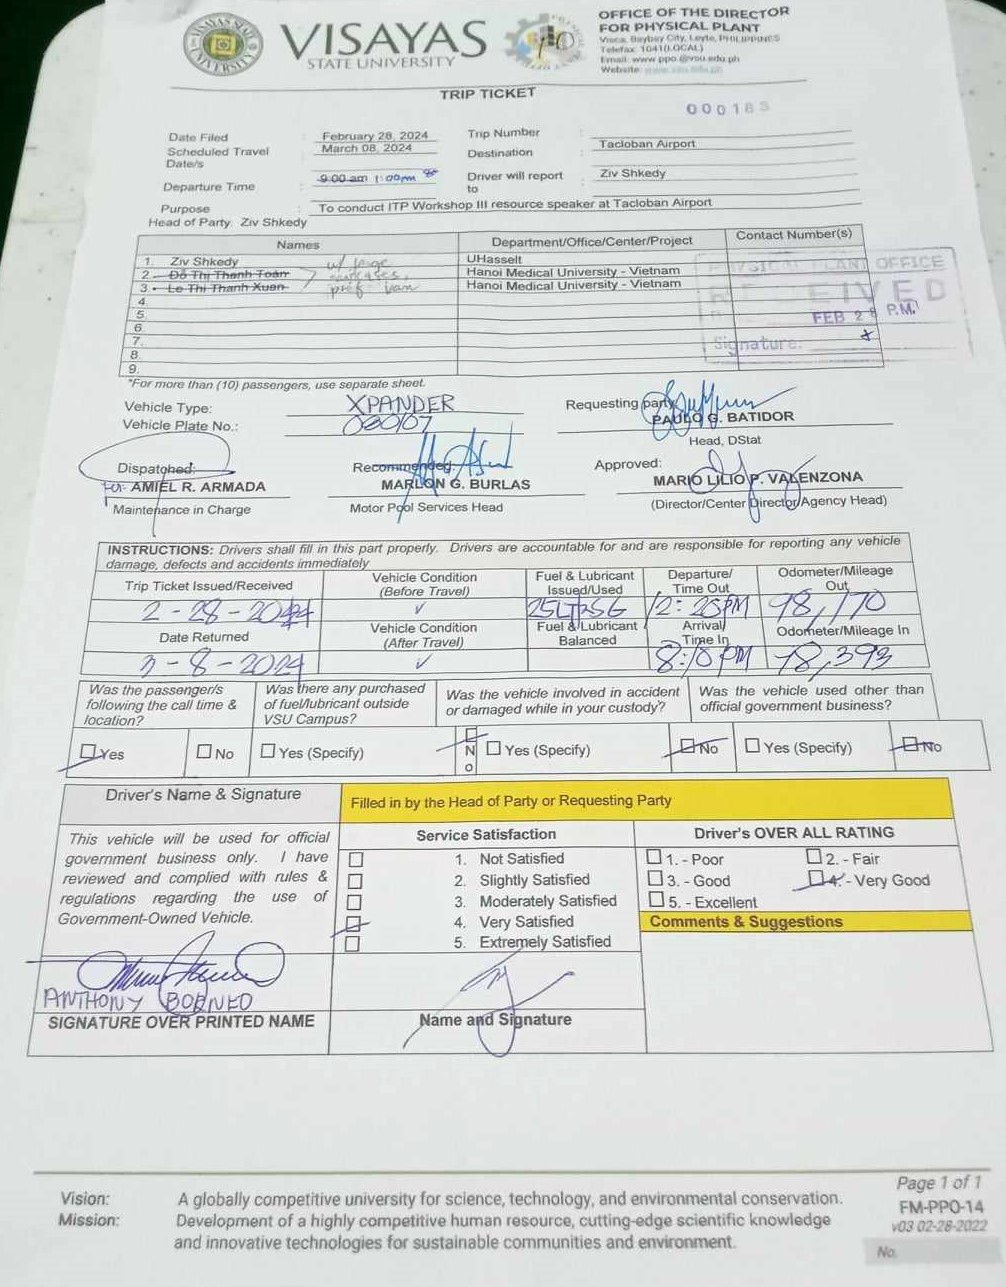 VISAYAS
STATE UNIVERSITY
OFFICE OF THE DIRECTOR
FOR PHYSICAL PLANT
Visca, Baybay City, Leyte, PHILIPPINES
Telefax: 1041(LOCAL)
Email: www ppo @vsu.edu.ph
Website: www.vsu.edu.ph
TRIP TICKET
000183
Date Filed : February 28, 2024
Trip Number :
Scheduled Travel Date/s : March 08, 2024
Destination : Tacloban Airport
Departure Time : 9:00 am 1:00pm
Driver will report to : Ziv Shkedy
Purpose : To conduct ITP Workshop III resource speaker at Tacloban Airport
Head of Party: Ziv Shkedy
Names Department/Office/Center/Project Contact Number(s)
1. Ziv Shkedy UHasselt
2. Đỗ Thị Thanh Toàn Hanoi Medical University - Vietnam
3. Le Thi Thanh Xuan Hanoi Medical University - Vietnam
w/ large
suitcases,
pref. van
4.
5.
6.
7.
8.
9.
PHYSICAL PLANT OFFICE
RECEIVED
FEB 28 P.M.
Signature:
*For more than (10) passengers, use separate sheet.
Vehicle Type: XPANDER
Vehicle Plate No.:
Requesting party
PAULO G. BATIDOR
Head, DStat
Dispatched:
for: AMIEL R. ARMADA
Maintenance in Charge
Recommended:
MARLON G. BURLAS
Motor Pool Services Head
Approved:
MARIO LILIO P. VALENZONA
(Director/Center Director/Agency Head)
INSTRUCTIONS: Drivers shall fill in this part properly. Drivers are accountable for and are responsible for reporting any vehicle
damage, defects and accidents immediately
Trip Ticket Issued/Received
Vehicle Condition (Before Travel)
Fuel & Lubricant Issued/Used
Departure/ Time Out
Odometer/Mileage Out
2-28-2024 ✓ 12:28PM 98,170
Date Returned
Vehicle Condition (After Travel)
Fuel & Lubricant Balanced
Arrival/ Time In
Odometer/Mileage In
3-8-2024 ✓ 8:10 PM 98,393
Was the passenger/s following the call time & location?
Was there any purchased of fuel/lubricant outside VSU Campus?
Was the vehicle involved in accident or damaged while in your custody?
Was the vehicle used other than official government business?
Yes No Yes (Specify) No Yes (Specify) No Yes (Specify) No
Driver's Name & Signature
Filled in by the Head of Party or Requesting Party
This vehicle will be used for official
government business only. I have
reviewed and complied with rules &
regulations regarding the use of
Government-Owned Vehicle.
Service Satisfaction
1. Not Satisfied
2. Slightly Satisfied
3. Moderately Satisfied
4. Very Satisfied
5. Extremely Satisfied
Driver's OVER ALL RATING
1. - Poor 2. - Fair
3. - Good 4. - Very Good
5. - Excellent
Comments & Suggestions
ANTHONY BORNEO
SIGNATURE OVER PRINTED NAME
Name and Signature
Vision: A globally competitive university for science, technology, and environmental conservation.
Mission: Development of a highly competitive human resource, cutting-edge scientific knowledge
and innovative technologies for sustainable communities and environment.
Page 1 of 1
FM-PPO-14
v03 02-28-2022
No.